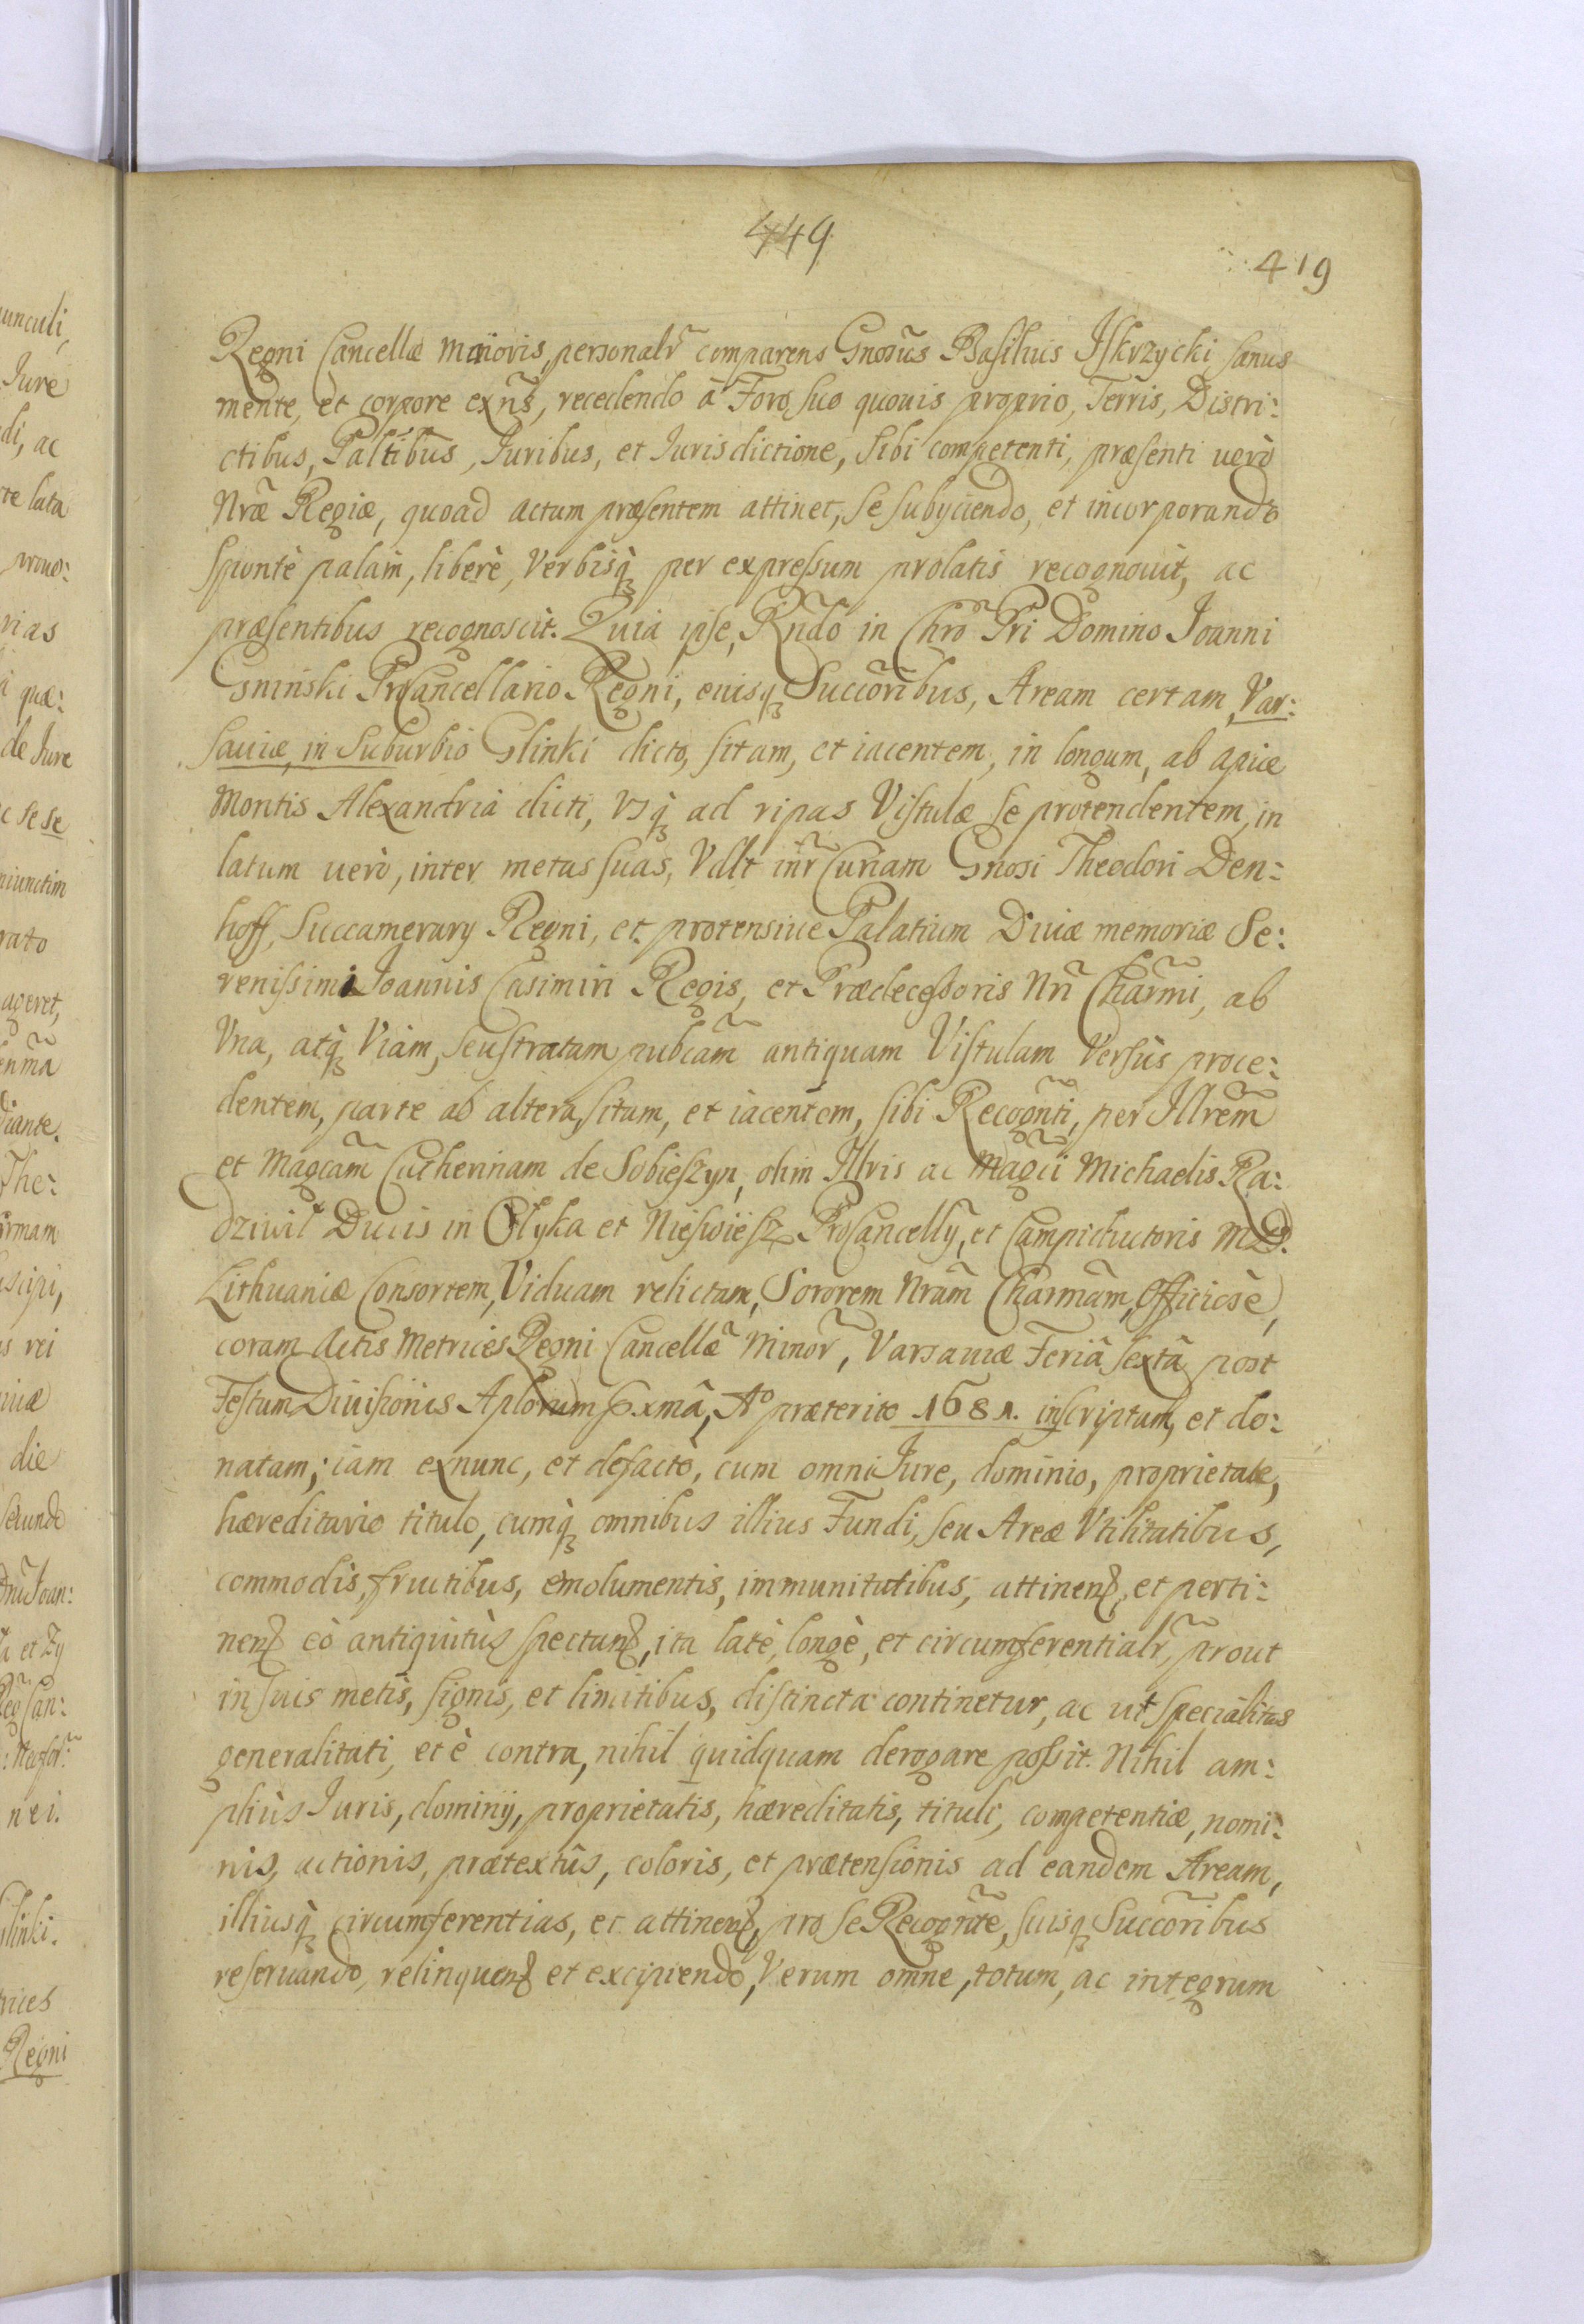 449
419
Regni Cancellæ Minoris, personalr̃ comparens Gnosus Basilius Iskrzycki sanus
mente, et corpore exñs, recedendo â Foro suo quouis proprio, Terris, Distri:
ctibus, Paltibus, Iuribus, et Iurisdictione, sibi competenti, præsenti uerò
Nræ Regiæ, quoad actum præsentem attinet, se subyciendo, et incorporando
sponte palàm, liberè, Verbisq̃ per expressum prolatis recognouit, ac
præsentibus recognoscit. Quia ipse, Rñdo in Chrõ Pri Domino Ioanni
Gninski ProCancellario Regni, eiusq̃ Succoribus, Aream certam, Var:
sauiæ, in Suburbio Glinki dicto, sitam, et iacentem, in longum, ab apice
Montis Alexandria dicti, vsq̃ ad ripas Vistulæ se protendentem, in
latum uerò, inter metas suas, Vdlt inr̃ Curiam Gnosi Theodori Den:
hoff, Succamerary Regni, et protensiue Palatium Diuæ memoriæ Se:
renissimi Ioannis Casimiri Regis, et Prædecessoris Nri Charmi, ab
Vna, atq̃ Viam, seu stratam pubcam antiquam Vistulam Versùs proce:
dentem, parte ab altera, sitam, et iacentem, sibi Recognti, per Illrem
et Magcam Catherinam de Sobieszyn, olim Illris ac Magci Michaelis Ra:
dziwił Ducis in Ołyka et Nieświesz ProCancelly, et Campiductoris M.D.
Lithuaniæ Consortem, Viduam relictam, Sororem Nram Charmam, Officiosè,
coram Actis Metrices Regni Cancellæ Minor̃, Varsauiæ Feriâ sextâ post
Festum Diuisionis Aplorum pxmâ, Aº præterito 1681. inscriptam, et do:
natam; iam exnunc, et defacto, cum omni Iure, dominio, proprietate,
hæreditario titulo, cumq̃ omnibus illius Fundi, seu Areæ Vtilitatibus,
commodis, fructibus, emolumentis, immunitatibus, attinen, et perti:
nen eò antiquitùs spectan, ita latè, longè, et circumferentialr̃, prout
in suis metis, signis, et limitibus, distincta continetur, ac ut specialitas
generalitati, et è contra, nihil quidquam derogare possit. Nihil am:
pliùs Iuris, dominij, proprietatis, hæreditatis, tituli, competentiæ, nomi:
nis, actionis, prætextûs, coloris, et prætensionis ad eandem Aream,
illiusq̃ circumferentias, et attinen, pro se Recognte, suisq̃ Succoribus
reseruando, relinquen et excipiendo, Verum omne, totum, ac integrum